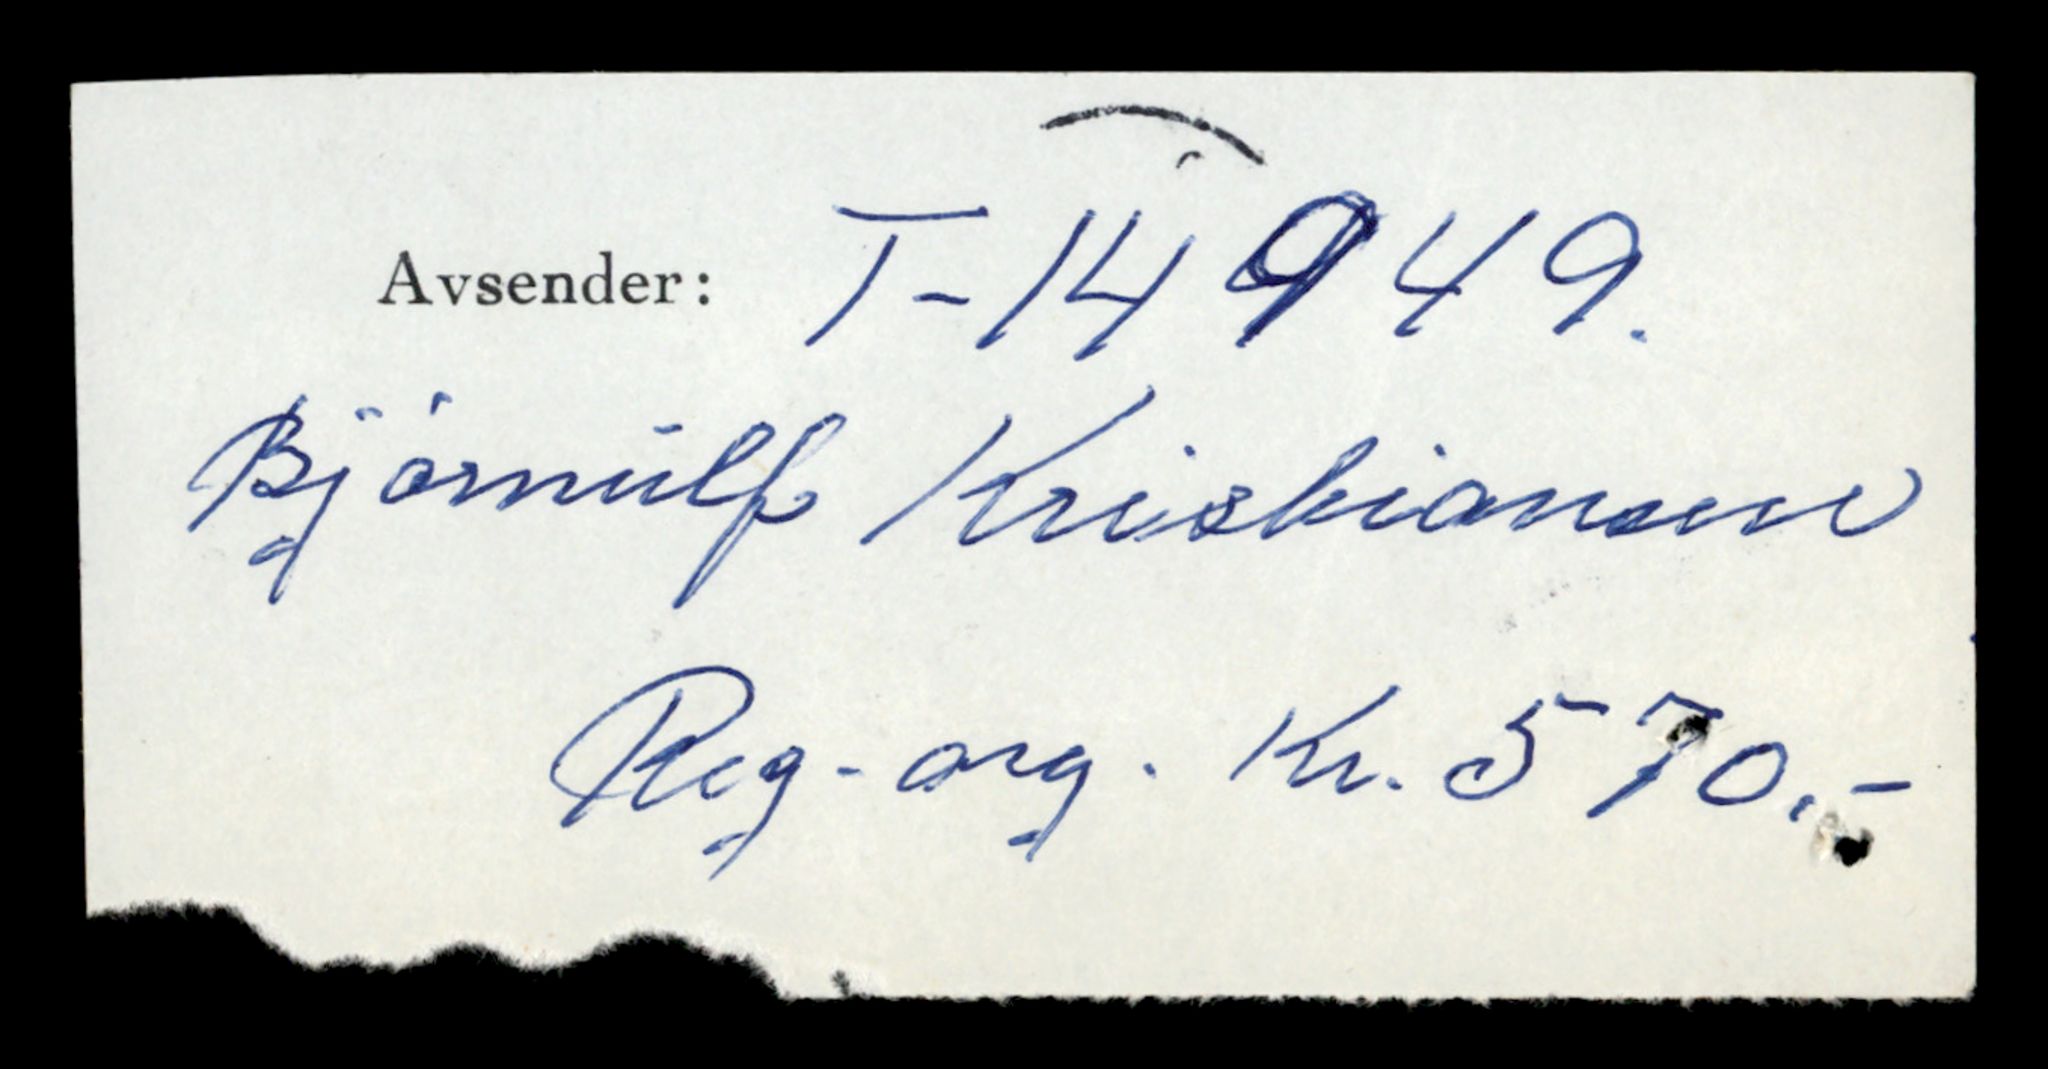 Avsender: T-14949.
Bjørnulf Kristiansen
Reg-avg. Kr. 570,-